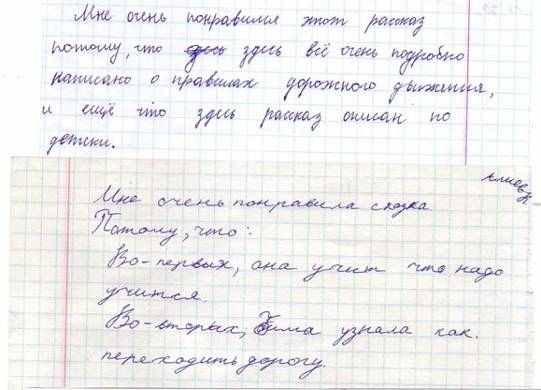 Мне очень понравился этот рассказ
потому, что здесь всё очень подробно
написано о правилах дорожного движения,
и ещё что здесь рассказ описан по
детски.
Мне очень понравила сказка
Потому, что:
Во-первых, она учит что надо
учится.
Во-вторых, Тима узнала как.
переходить дорогу.